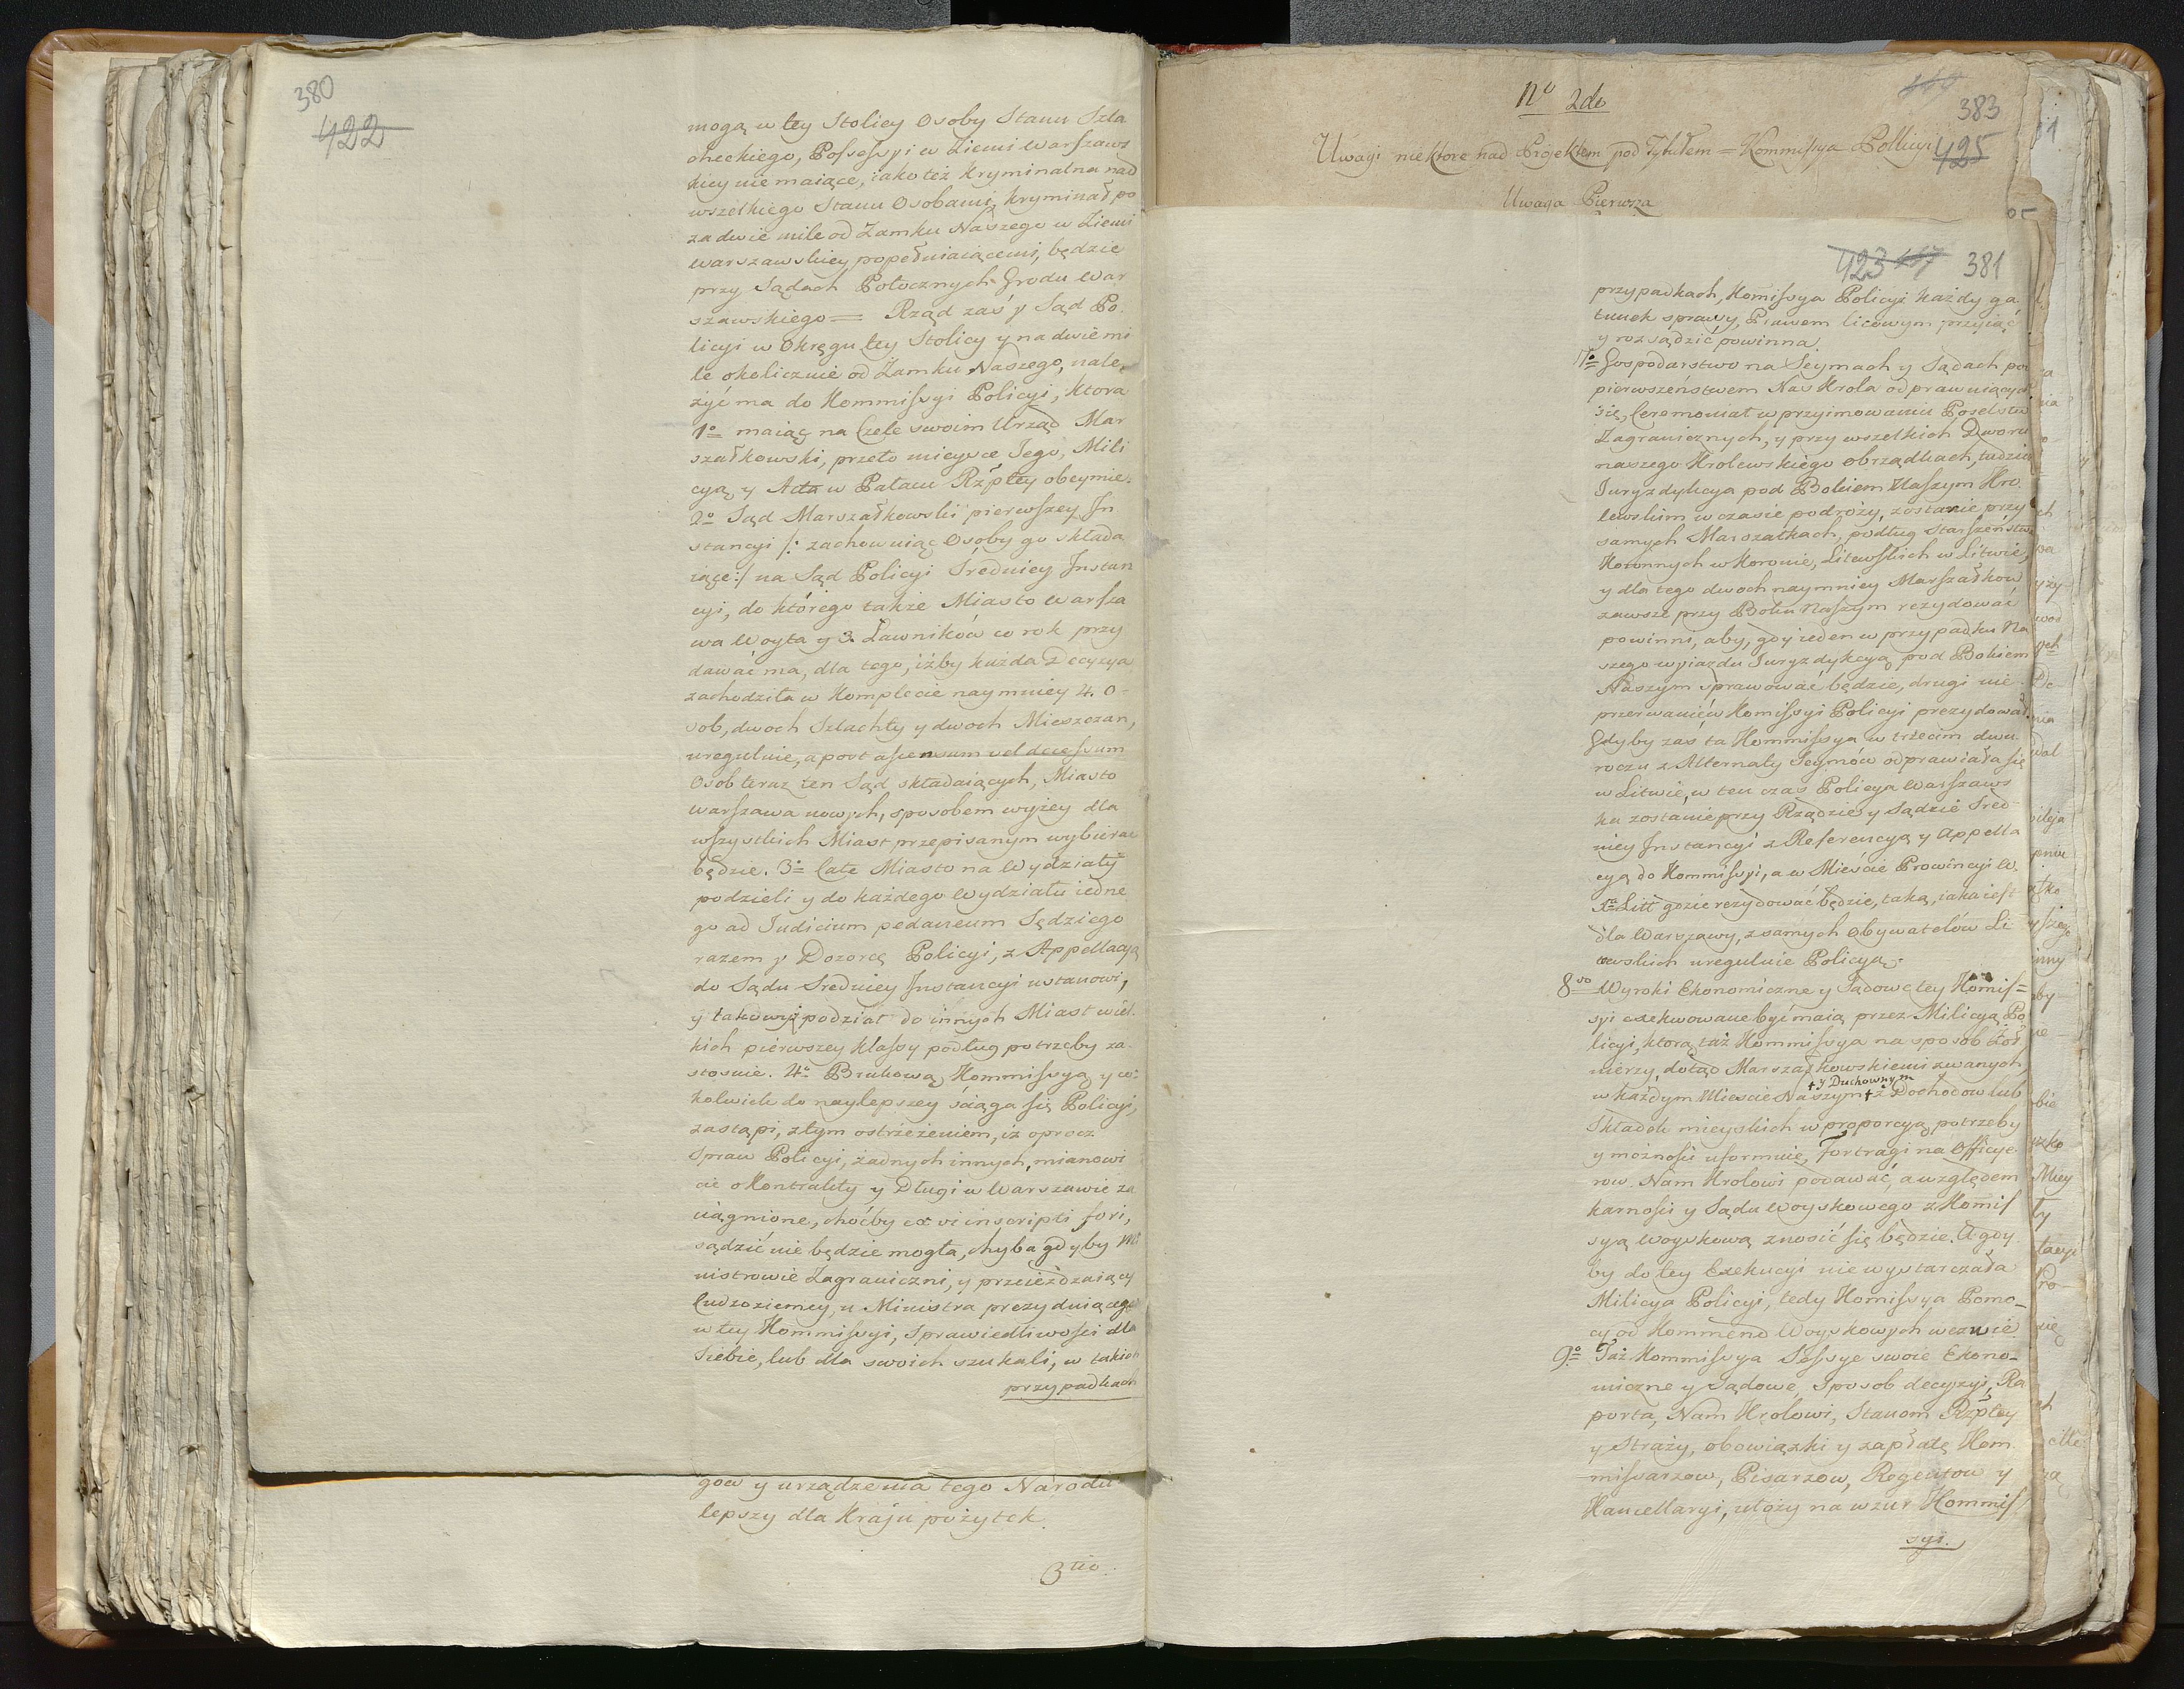 380
422
mogą w tey Stolicy Osoby Stanu Szla
checkiego, Possessyi w Ziemi Warszaws
kiey nie maiące, iako też Kryminalna nad
wszelkiego Stanu Osobami, kryminał po
za dwie mile od Zamku Naszego w Ziemi
Warszawskiey popełniaiącemi, będzie
przy Sądach Potocznych Grodu War
szawskiego = Rząd zaś y Sąd Po
licyi w Okręgu tey Stolicy y na dwie mi
le okolicznie od Zamku Naszego, nale,
żyć ma do Kommissyi Policyi, ktora
1o maiąc na Czele swoim Urząd Mar
szałkowski, przeto mieysce Jego, Mili
cyą y Acta w Pałacu Rzptey obeymie.
2o Sąd Marszałkowski pierwszey In
stancyi /: zachowuiąc Osoby go składa
iące :/ na Sąd Policyi Sredniey Instan
cyi, do którego także Miasto Warsza
wa Woyta y 3. Ławników co rok przy
dawać ma, dla tego, iżby każda Decyzya
zachodziła w Komplecie naymniey 4. O-
sob, dwoch Szlachty y dwoch Mieszczan,
ureguluie, a post ascensum vel decessum
Osob teraz ten Sąd składaiących, Miasto
Warszawa nowych, sposobem wyżey dla
wszystkich Miast przepisanym wybierać
będzie. 3o Całe Miasto na Wydziały
podzieli y do każdego Wydziału iedne
go ad Judicium pedaneum Sędziego
razem y Dozorcę Policyi, z Appellacyą
do Sądu Sredniey Instancyi ustanowi,
y takowyż podział do innych Miast wiel
kich pierwszey klassy podług potrzeby za-
stosuie. 4o Brukową Kommissyą y co-
kolwiek do naylepszey sciąga się Policyi,
zastąpi, z tym ostrzeżeniem, iż oprocz
Spraw Policyi, żadnych innych, mianowi
cie o Kontrakty y Długi w Warszawie za
ciągnione, choćby ex vi inscripti fori,
sądzić nie będzie mogła, chyba gdyby Mi
nistrowie Zagraniczni, y przeieżdzaiący
Cudzoziemcy, u Ministra prezyduiącego
w tey Kommissyi, Sprawiedliwości dla
Siebie, lub dla swoich szukali, w takich
przypadkach
gow y urządzenia tego Narodu
lepszy dla Kraju pożytek.
3tio.
No 2do
383
425
Uwagi niektore nad Projektem pod Tytułem = Kommissya Pollicyi
Uwaga Pierwsza
423 381
przypadkach, Komissya Policyi każdy ga
tunek sprawy, Prawem licowym przyiąć
y rozsądzić powinna.
Gospodarstwo na Seymach y Sądach pod
pierwszeństwem Nas Krola odprawuiących
się, Ceremoniał w przyimowaniu Poselstw
Zagranicznych, y przy wszelkich Dworu
naszego Krolewskiego obrządkach, tudzież
Juryzdykcya pod Bokiem Naszym Kro
lewskim w czasie podroży, zostanie przy
samych Marszałkach, podług Starszeństwa
Koronnych w Koronie, Litewskich w Litwie,
y dla tego dwoch naymniey Marszałkow
zawsze przy Boku Naszym rezydować
powinni, aby, gdy ieden w przypadku Na
szego wyiazdu Juryzdykcyą pod Bokiem
Naszym sprawować będzie, drugi nie
przerwanie w Komissyi Policyi prezydował.
Gdyby zaś ta Kommissya w trzecim dwu
roczu z Alternaty Seymów odprawiała się
w Litwie, w ten czas Policya Warszaws
ka zostanie przy Rządzie y Sądzie Sred
niey Instancyi z Referencyą y Appella
cyą do Kommissyi, a w Mieście Prowincyi W.
Xa Litt gdzie rezydować będzie, taką, iaka iest
dla Warszawy, z samych Obywatelów Li
tewskich ureguluie Policyą.
8vo Wyroki Ekonomiczne y Sądowe tey Komis=
syi exekwowane być maią przez Milicyą Po
licyi, ktorą taż Kommissya na sposob Żoł
nierzy, dotąd Marszałkowskiemi zwanych,
† y Duchownym
w każdym Mieście Naszym † z Dochodow lub
Składek mieyskich w proporcyą potrzeby
y możności uformuie, Fortragi na Officye
row Nam Krolowi podawać, a względem
karności y Sądu Woyskowego z Komis
syą Woyskową znosić się będzie. A gdy
by do tey Exekucyi nie wystarczała
Milicya Policyi, tedy Komissya Pomo-
cy od Kommend Woyskowych wezwie
9o Taż Kommissya Sessye swoie Ekono-
miczne y Sądowe, Sposob decyzyi, Ra
porta, Nam Krolowi, Stanom Rzptey
y Straży, obowiązki y zapłatę Kom
missarzow, Pisarzow, Regentow y
Kancellaryi, ułoży na wzur Kommis
syi.